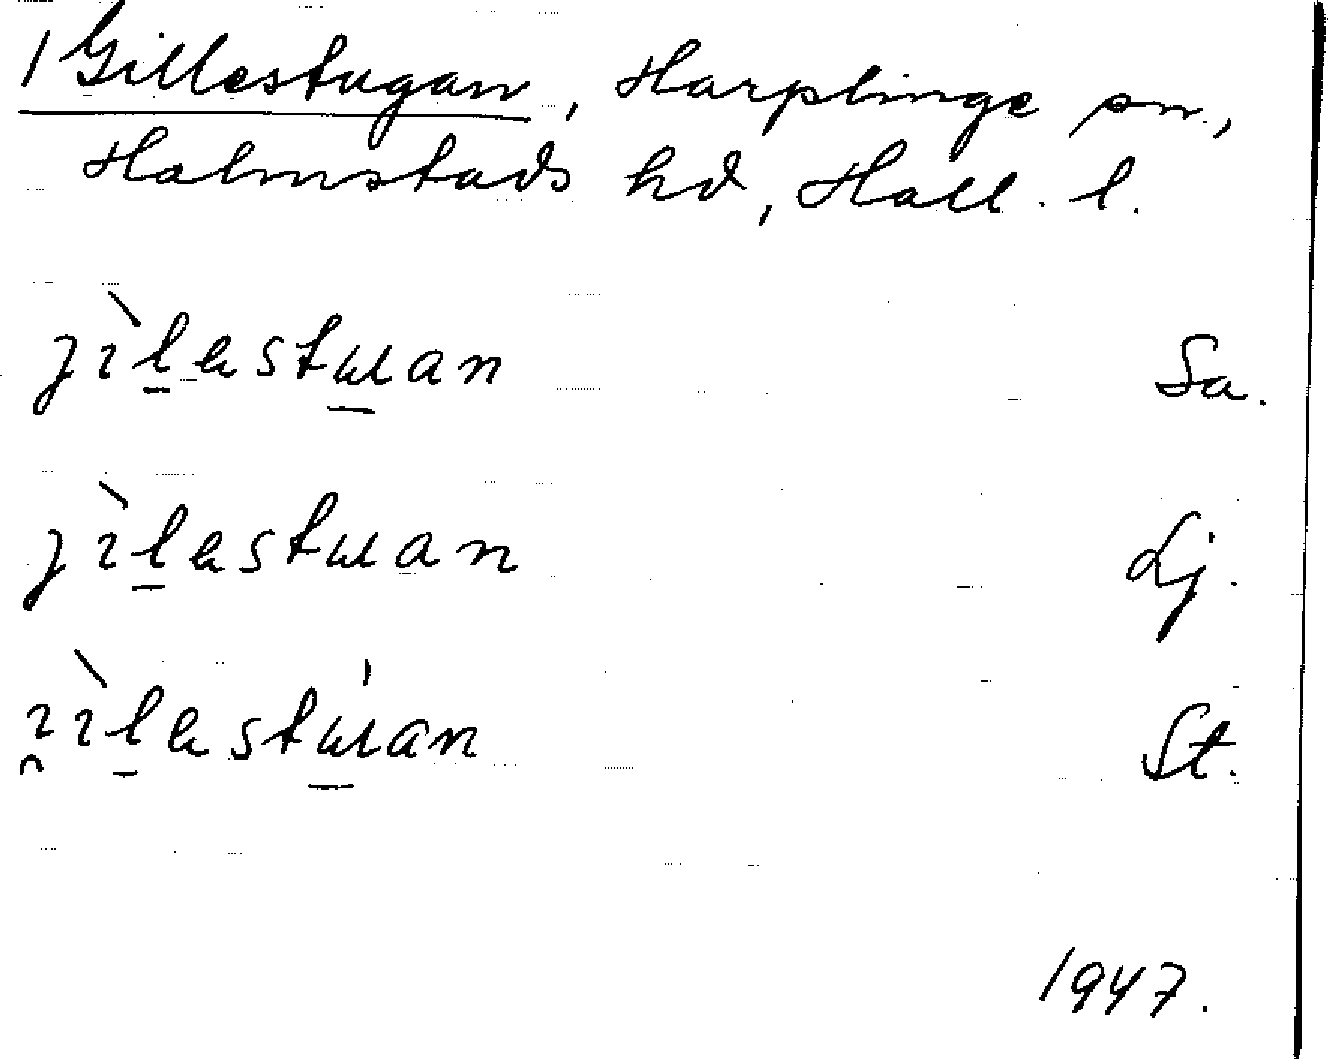 1 Gillestugan, Harplinge sn.,
Halmstads hd, Hall. l.
jìlestɯan Sa.
jìlestɯan Lj.
ı̯ìlestɯ́an St.
1947.